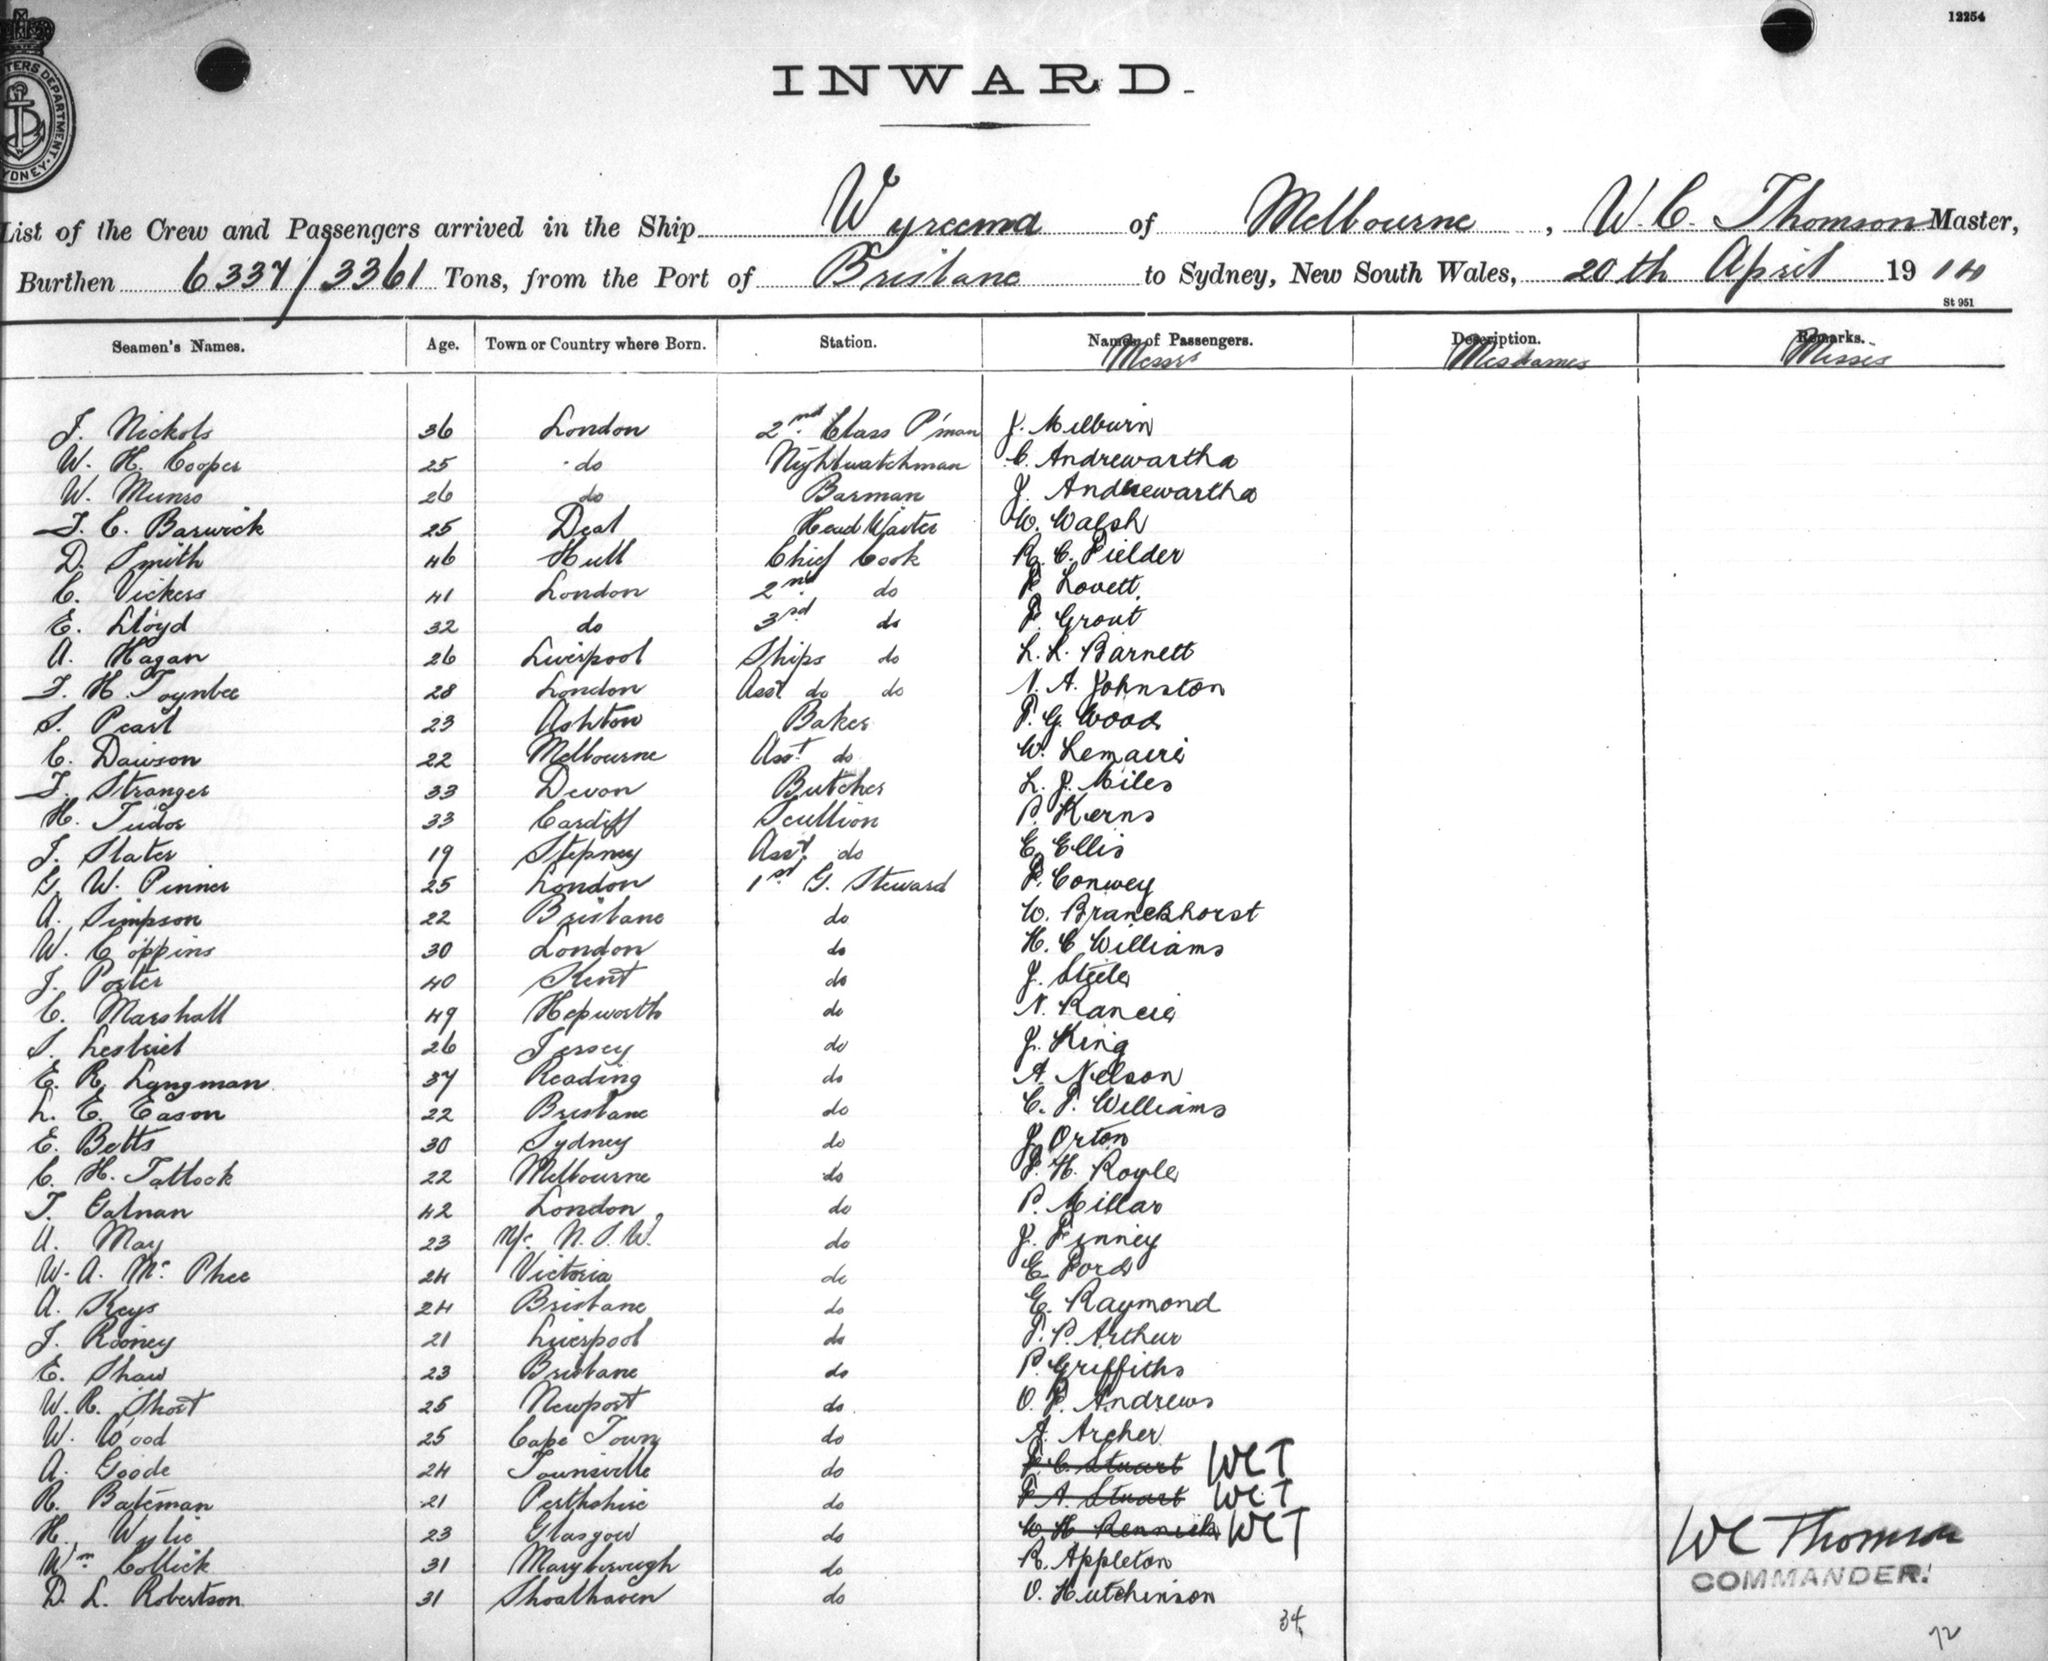 12254
TERS DEPARTMENT. SYDNEY
INWARD.
List of the Crew and Passengers arrived in the Ship Wyreema of Melbourne, W. C. Thomson Master,
Burthen 6337/3361 Tons, from the Port of Brisbane to Sydney, New South Wales, 20th April 1914
St 951
Seamen's Names. Age. Town or Country where Born. Station. Names of Passengers. Description. Remarks.
Messrs Mesdames Misses
J. Nickols 36 London 2nd Class P'man J. Milburn
W. H. Cooper 25 do Nightwatchman C. Andrewartha
W. Munro 26 do Barman J. Andrewartha
J. C. Barwick 25 Deal Head Waiter W. Walsh
D. Smith 46 Hull Chief Cook R. C. Fielder
C. Vickers 41 London 2nd do F. Lovett
E. Lloyd 32 do 3rd do F. Grout
A. Hagan 26 Liverpool Ships do L. L. Barnett
J. H. Toynbee 28 London Asst do do N. A. Johnston
S. Pearl 23 Ashton Baker F. G. Wood
C. Dawson 22 Melbourne Asst do W. Lemaire
J. Stranger 33 Devon Butcher L. J. Miles
H. Tudor 33 Cardiff Scullion P. Kerns
J. Slater 19 Stepney Asst. do E. Ellis
G. W. Pinner 25 London 1st G. Steward F. Conwey
A. Simpson 22 Brisbane do W. Branckhorst
W. Coppins 30 London do H. C. Williams
J. Porter 40 Kent do J. Steele
C. Marshall 49 Hepworth do N. Rancie
S. 26 Jersey do J. King
E. R. Langman 37 Reading do A. Nelson
L. E. Eason 22 Brisbane do C. F. Williams
E. Betts 30 Sydney do J. Orton
C. H. Tatlock 22 Melbourne do F. H. Royle
T. Galnan 42 London do P. Millar
A. May 23 N/c N.S.W. do J. Finney
W. A. Mc Phee 24 Victoria do E. Ford
A. Keys 24 Brisbane do E. Raymond
J. Rooney 21 Liverpool do F. P. Arthur
E. Shaw 23 Brisbane do P. Griffiths
W. R. Short 25 Newport do O. F. Andrews
W. Wood 25 Cape Town do A. Archer
A. Goode 24 Townsville do F. C. Stuart WCT
R. Bateman 21 Perthshire do F A. Stuart WCT
H. Wylie 23 Glasgow do W H Rennick WCT
Wm. Collick 31 Maryborough do R. Appleton WC Thomson
D. L. Robertson 31 Shoalhaven do O. Hutchinson COMMANDER.
34 72